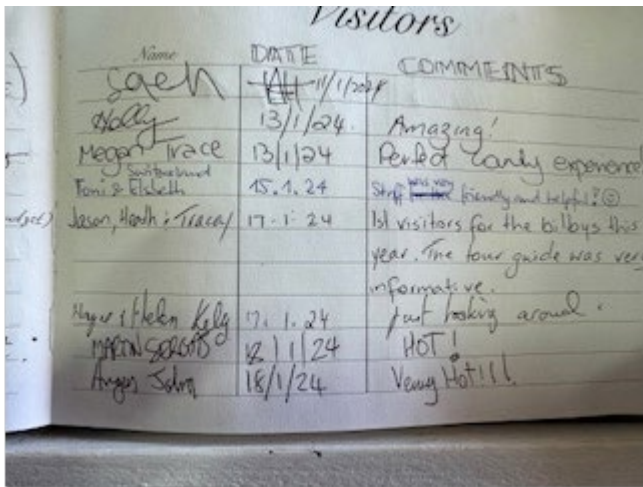 Visitors
Name DATE COMMENTS
11/1/2024
Holly 13/1/24. Amazing!
Megan Trace 13/1/24 Perfect experience
Switzerland
Toni & Elsbeth 15.1.24 Staff was very friendly and helpful!
Jason, Heath & Tracey 17.1.24 1st visitors for the bilbys this
year. The tour guide was very
informative.
& Helen Kelly 17.1.24 just looking around.
MARTIN 18/1/24 HOT!
18/1/24 Very Hot!!!